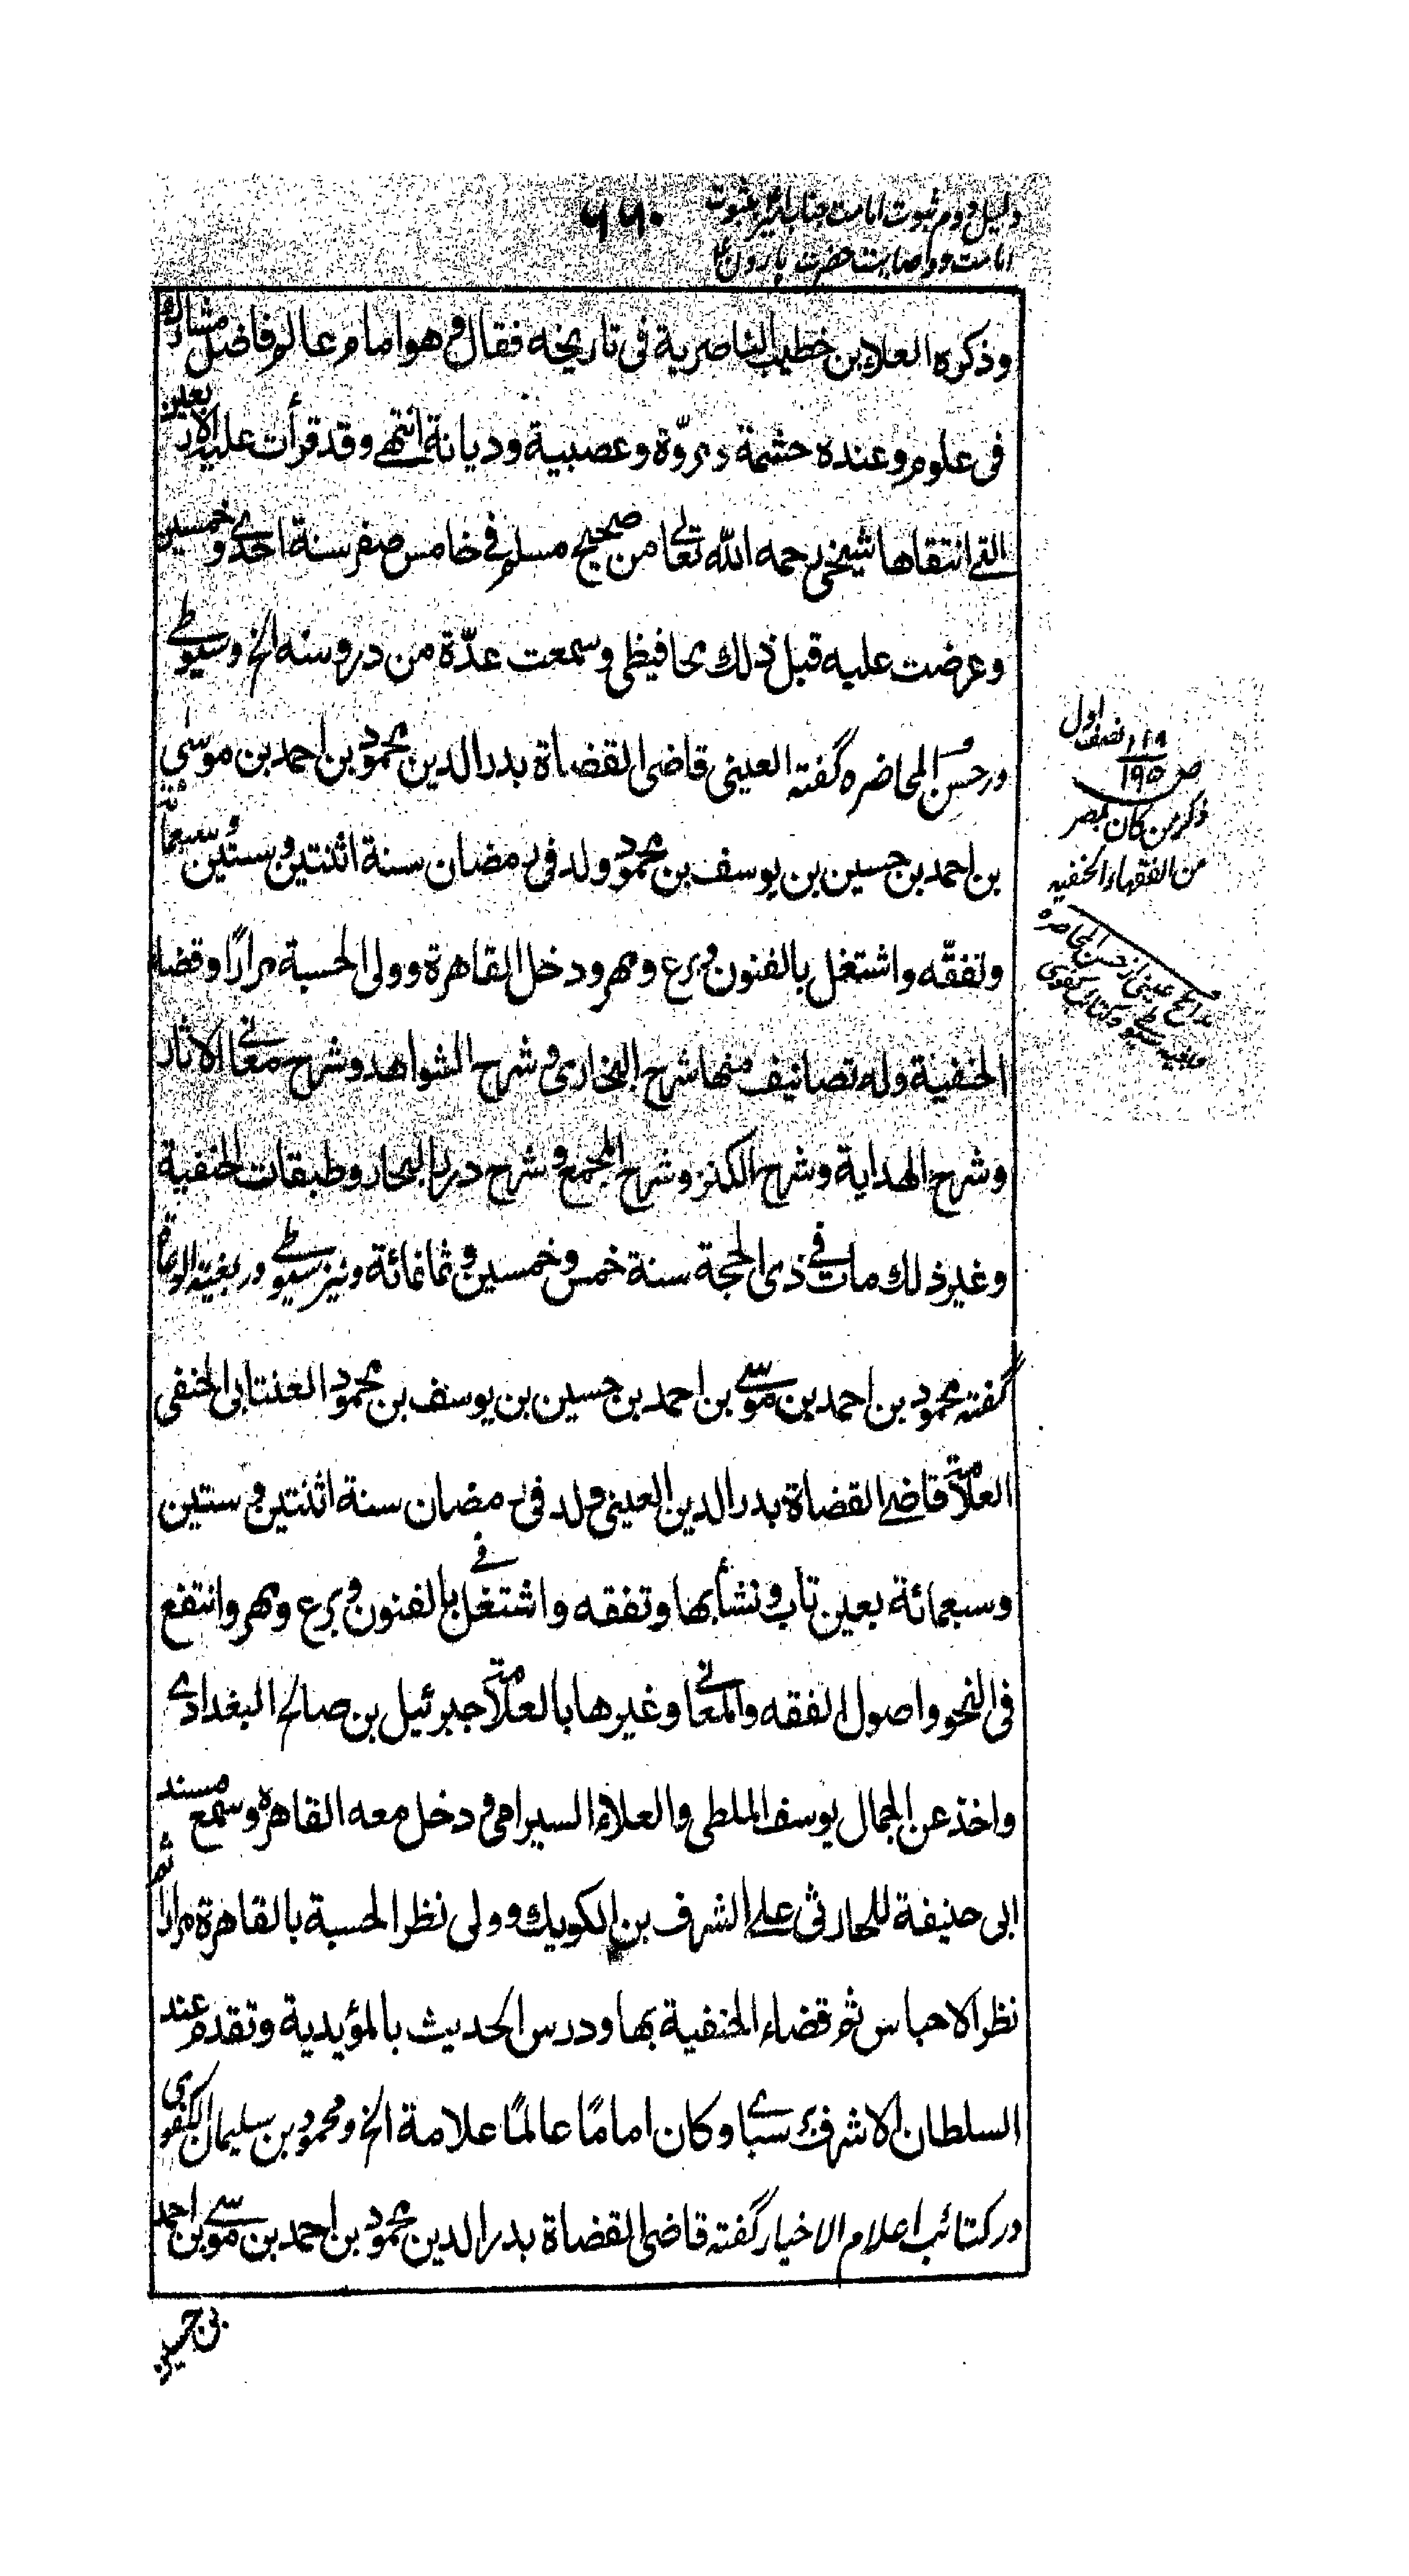 دلیل دوم ثبوت امامت جناب امیر بثبوت
۶۶۰
امامت ووصایت حضرت هارون ۴
وذكره العلاء بن خطيب الناصرية فى تاريخه فقال وهو امام عالم فاضل مشارك
فى علوم وعنده حشمة ومروّة وعصبية وديانة انتهى وقد قرأت عليه الاربعين
التى انتقاها شيخى رحمه الله تعالى من صحيح مسلم فى خامس صفر سنة احدى وخمسين
وعرضت عليه قبل ذلك محافيظى وسمعت عدّة من دروسه الخ وسيوطى
در حسن المحاضره گفته العينى قاضى القضاة بدر الدين محمود بن احمد بن موسى
بن احمد بن حسين بن يوسف بن محمود ولد فى رمضان سنة اثنتين وستين وسبعمائة
وتفقّه واشتغل بالفنون وبرع ومهر ودخل القاهرة وولى الحسبة مرارًا وقضاء
الحنفية وله تصانيف منها شرح البخارى وشرح الشواهد وشرح معانى الاثار
وشرح الهداية وشرح الكنز وشرح المجمع وشرح درر البحار وطبقات الحنفية
وغير ذلك مات فى ذى الحجة سنة خمس وخمسين وثمانمائة ونيز سيوطى در بغية الوعاة
گفته محمود بن احمد بن موسى بن احمد بن حسين بن يوسف بن محمود العنتابى الحنفى
العلامة قاضى القضاة بدر الدين العينى ولد فى رمضان سنة اثنتين وستين
وسبعمائة بعين تاب ونشأ بها وتفقه واشتغل بالفنون وبرع ومهر وانتفع فى
فى النحو واصول الفقه والمعانى وغيرها بالعلامة جبرئيل بن صالح البغدادى
واخذ عن الجمال يوسف الملطى والعلاء السيرامى ودخل معه القاهرة وسمع مسند
ابى حنيفة للحارثى على الشرف بن الكويك وولى نظر الحسبة بالقاهرة مرارا ثم
نظر الاحباس ثم قضاء الحنفية بها ودرس الحديث بالمؤيدية وتقدم عند
السلطان الاشرف برسباى وكان امامًا عالمًا علامة الخ ومحمود بن سليمان الكفوى
در كتائب اعلام الاخيار گفته قاضى القضاة بدر الدين محمود بن احمد بن موسى بن احمد
بن حسين
نصف اول
۱۱۹
ص ۱۹۵
ذکر من کان بمصر
من الفقهاء الحنفیه
مدائح عینی از حسن المحاضره
وبغیه سیوطی وکتائب کفوی